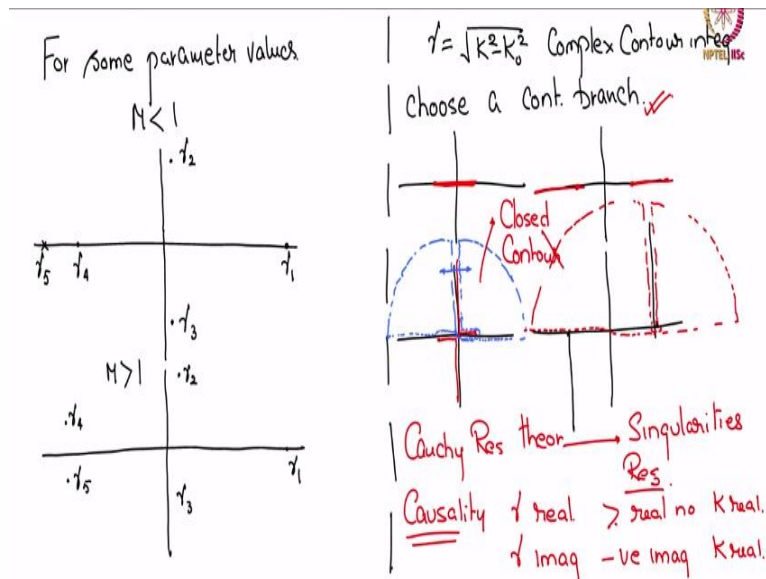 For some parameter values
M<1
.γ₂
γ₅ γ₄ γ₁
.γ₃
M>1 .γ₂
.γ₄
.γ₅ γ₁
γ₃
γ = √K²-K₀² Complex Contour integ
NPTEL IISc
Choose a cont. branch.
Closed
Contour
Cauchy Res theor Singularities
Res.
Causality γ real > real no K real.
γ imag -ve imag K real.